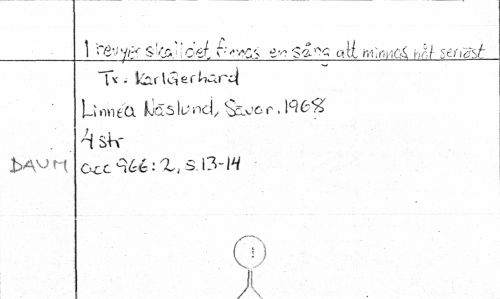 I revyer skall det finnas en sång att minnas nåt seriöst
Tr. Karl Gerhard
Linnéa Näslund, Sävar. 1968
4 str
DAUM acc 966:2, s.13-14